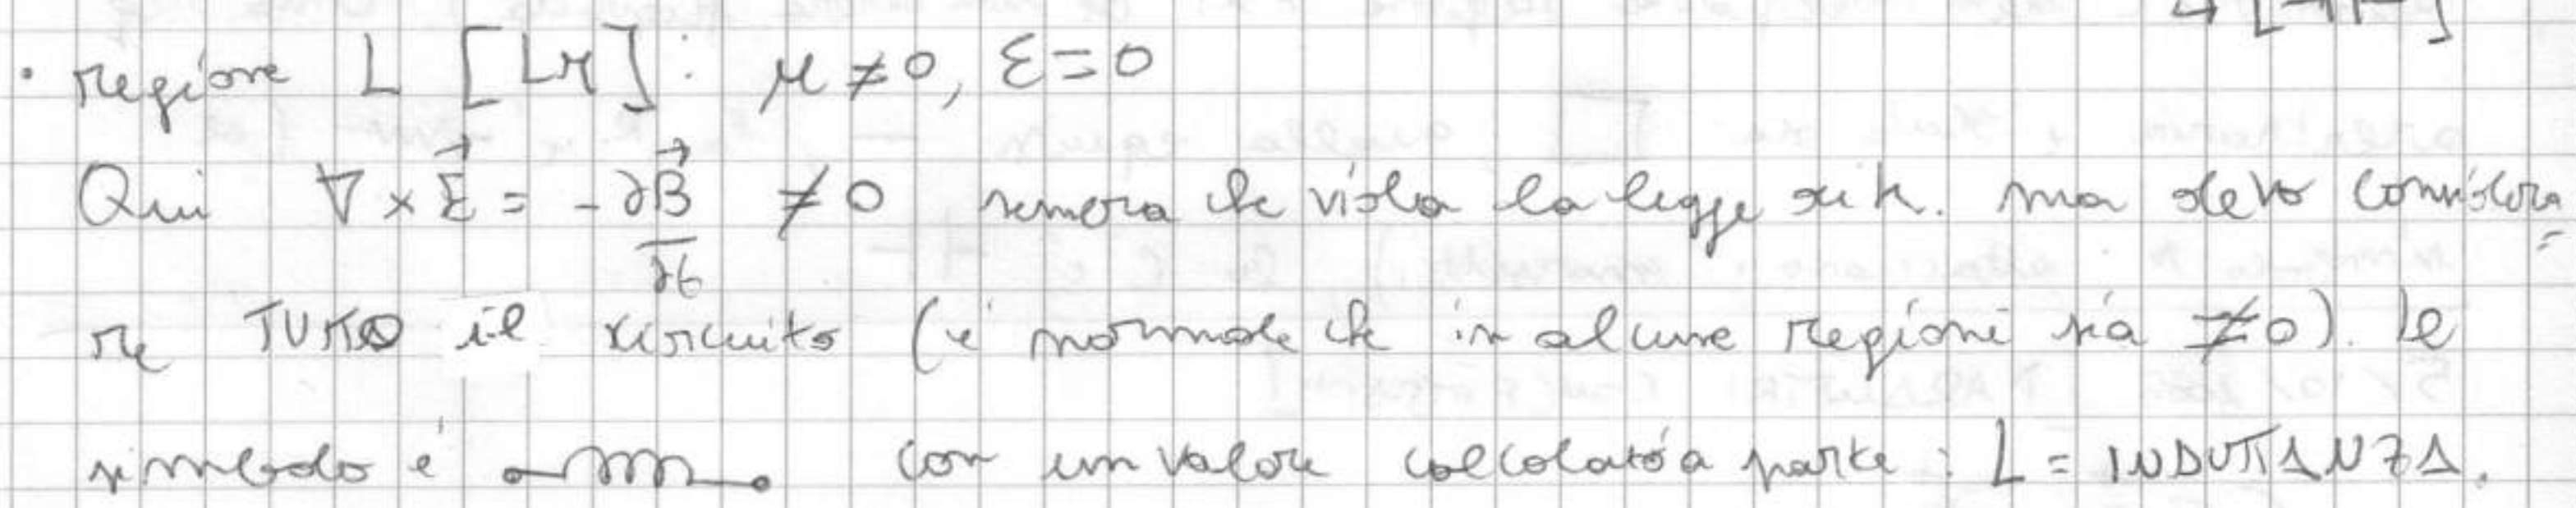 · regione L [LM]: μ ≠ 0, ε = 0
Qui ∇ × E⃗ = - ∂B⃗/∂t ≠ 0 sembra che viola la legge di k. ma devo considera=
re TUTTO il circuito (è normale che in alcune regioni sia ≠ 0). Il
simbolo è con un valore calcolato a parte : L = INDUTTANZA.